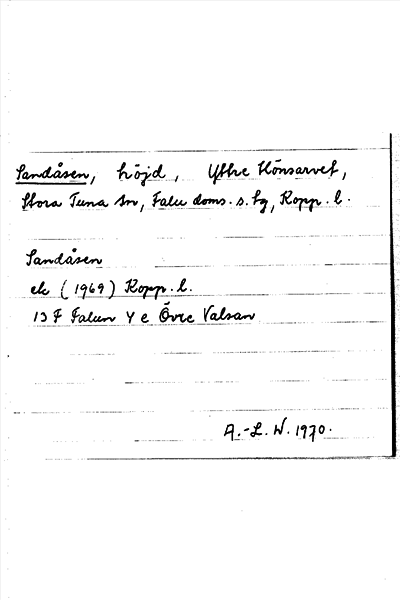 Sandåsen, höjd, Yttre Hönsarvet,
Stora Tuna sn, Falu doms. s. tg, Kopp. l.
Sandåsen
ek (1969) Kopp. l.
13 F Falun Y e Övre Valsan
A.-L. W. 1970.